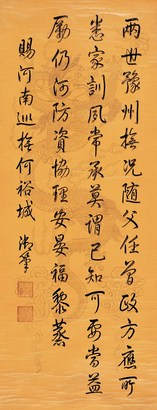 兩世豫州撫况随父任曾政方應所
悉家訓夙常承莫謂已知可要當益
勵仍河防資協理安晏福黎蒸
賜河南巡撫何裕城 御筆